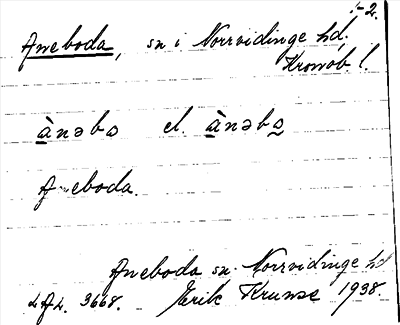 1-2.
Aneboda, sn i Norrvidinge hd.
Kronob. l.
ànəbo el. ànəbo
Aneboda.
Aneboda sn. Norrvidinge hd
3668. Erik 1938.